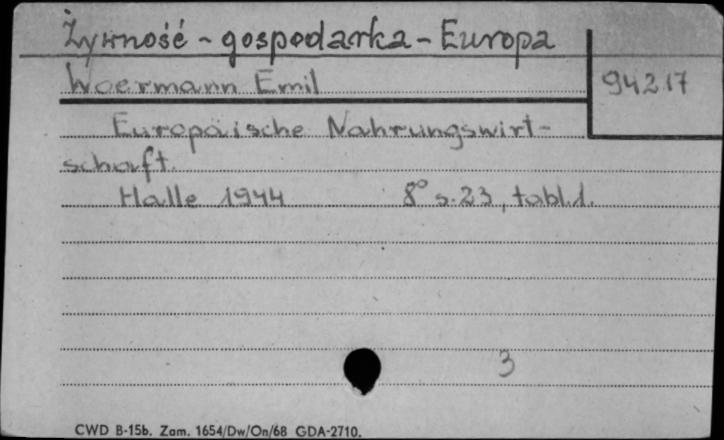 Żywność - gospodarka - Europa
Woermann Emil
94217
Europäische Nahrungswirt-
schaft.
Halle 1944 8° s. 23, tabl. 1.
3
CWD B-15b. Zam. 1654/Dw/On/68 GDA-2710.